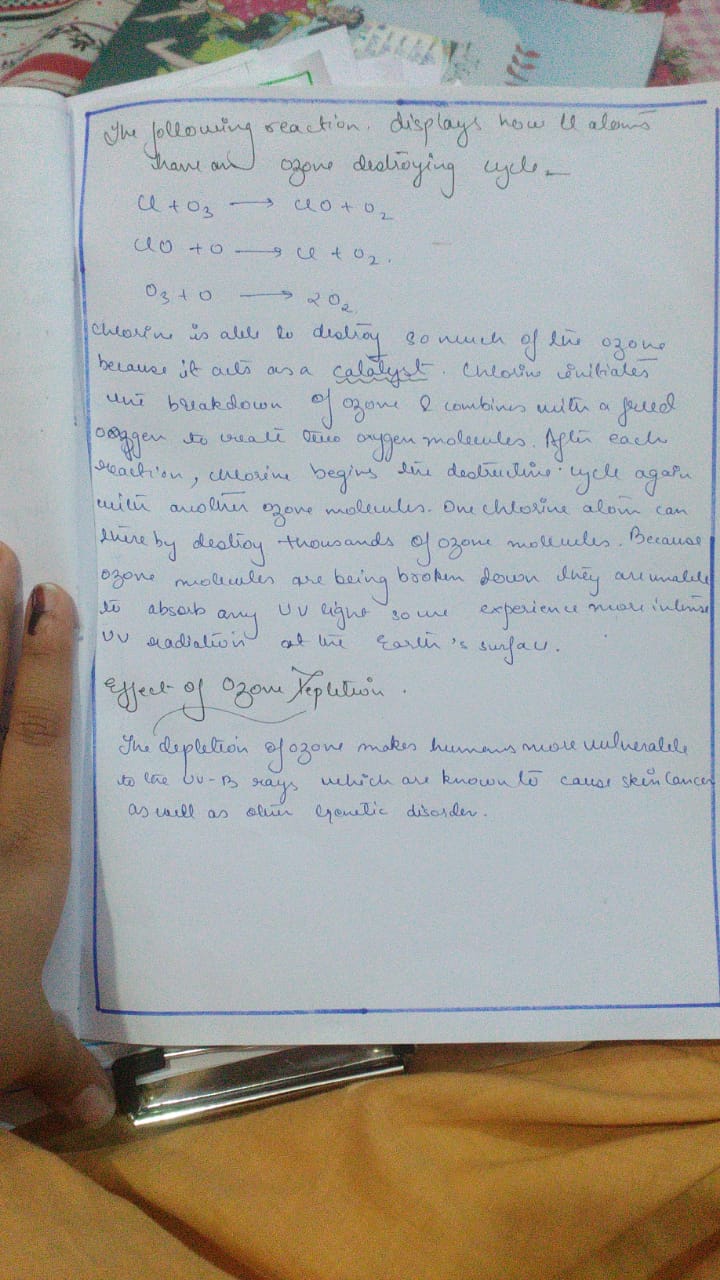 The following reaction, displays how Cl atoms
have an ozone destroying cycle -
Cl + O3 → ClO + O2
ClO + O → Cl + O2.
O3 + O → 2O2
Chlorine is able to destroy so much of the ozone
because it acts as a catalyst. Chlorine initiates
the breakdown of ozone & combines with a freed
oxygen to create two oxygen molecules. After each
reaction, chlorine begins the destructive cycle again
with another ozone molecules. One chlorine atom can
thereby destroy thousands of ozone molecules. Because
ozone molecules are being broken down they are unable
to absorb any UV light so we experience more intense
UV radiation at the Earth's surface.
Effect of Ozone Depletion.
The depletion of ozone makes humans more vulnerable
to the UV-B rays which are known to cause skin Cancer
as well as other Genetic disorder.